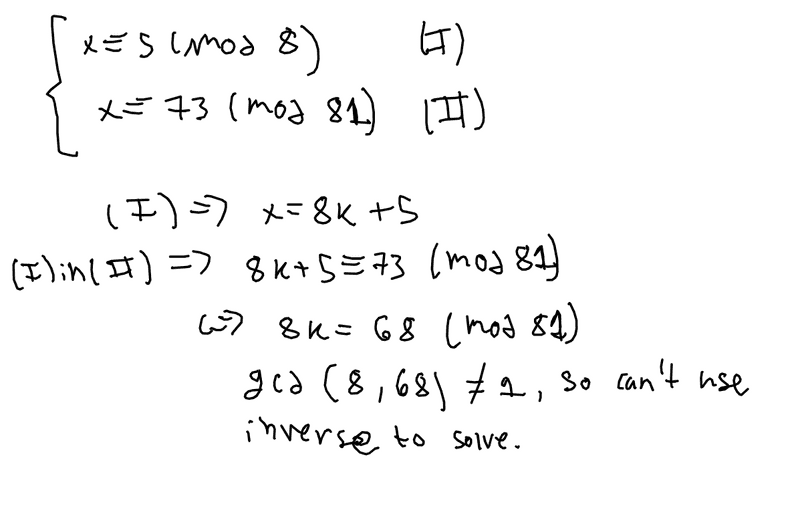 x ≡ 5 (mod 8) (I)
x ≡ 73 (mod 81) (II)
(I) => x = 8k + 5
(I) in (II) => 8k + 5 ≡ 73 (mod 81)
<=> 8k = 68 (mod 81)
gcd (8, 68) ≠ 1, so can't use
inverse to solve.